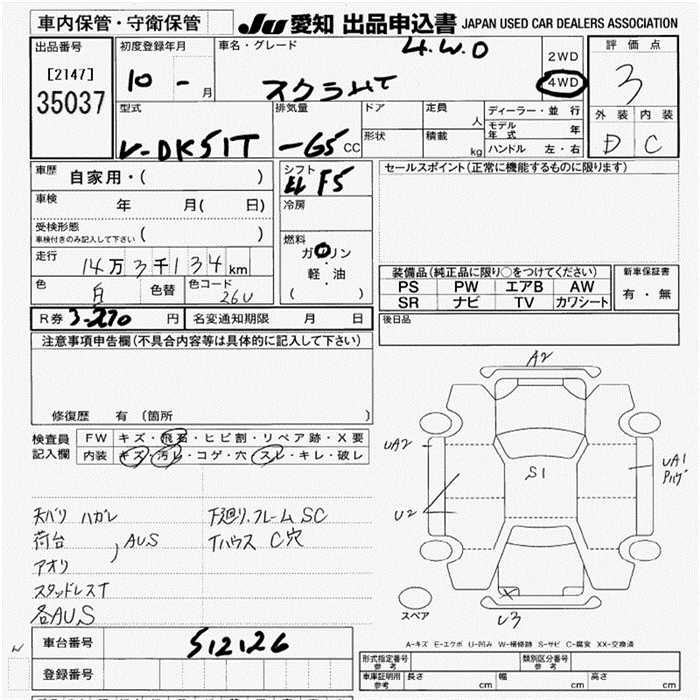 車内保管・守衛保管
JU 愛知 出品申込書 JAPAN USED CAR DEALERS ASSOCIATION
出品番号 [2147] 35037
初度登録年月 10 - 月
車名・グレード 4.W.D スクラムT
2WD 4WD
評価点 3
外装 内装
D C
型式 V-DK51T
排気量 -65 CC
ドア 定員 人
形状 積載 kg
ディーラー・並行
モデル年式 年
ハンドル 左・右
車歴 自家用・( )
車検 年 月( 日)
受検形態 車検付きのみ記入して下さい ( )
走行 14万3千134km
色 白 色替 色コード 26U
R券 3-270 円 名変通知期限 月 日
シフト F5
冷房
燃料 ガソリン 軽・油 ( )
セールスポイント(正常に機能するものに限ります)
装備品(純正品に限り○をつけてください)
PS PW エアB AW
SR ナビ TV カワシート
新車保証書 有・無
後日品
注意事項申告欄(不具合内容等は具体的に記入して下さい)
修復歴 有 (箇所 )
検査員記入欄
FW キズ・飛石・ヒビ割・リペア跡・X要
内装 キズ・汚レ・コゲ・穴・スレ・キレ・破レ
天バリ ハガレ
荷台 , AUS
アオリ
スタッドレスT
各AUS
下廻リ.フレーム SC
Tハウス C穴
A2
UA2
U2
S1
UA1
Pハゲ
X
U3
スペア
A-キズ E-エクボ U-凹み W-補修跡 S-サビ C-腐食 XX-交換済
w
車台番号 512126
登録番号
形式指定番号 参考
類別区分番号 参考
車庫証明用 参考 長さ cm 幅 cm 高さ cm